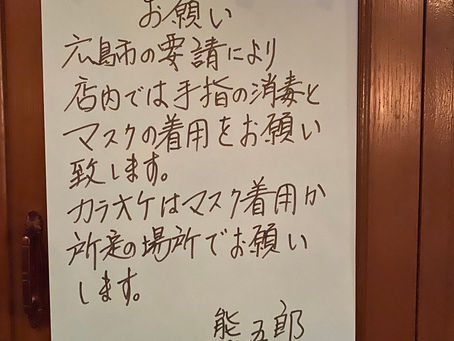 お願い
広島市の要請により
店内では手指の消毒と
マスクの着用をお願い
致します。
カラオケはマスク着用か
所定の場所でお願い
します。
熊五郎